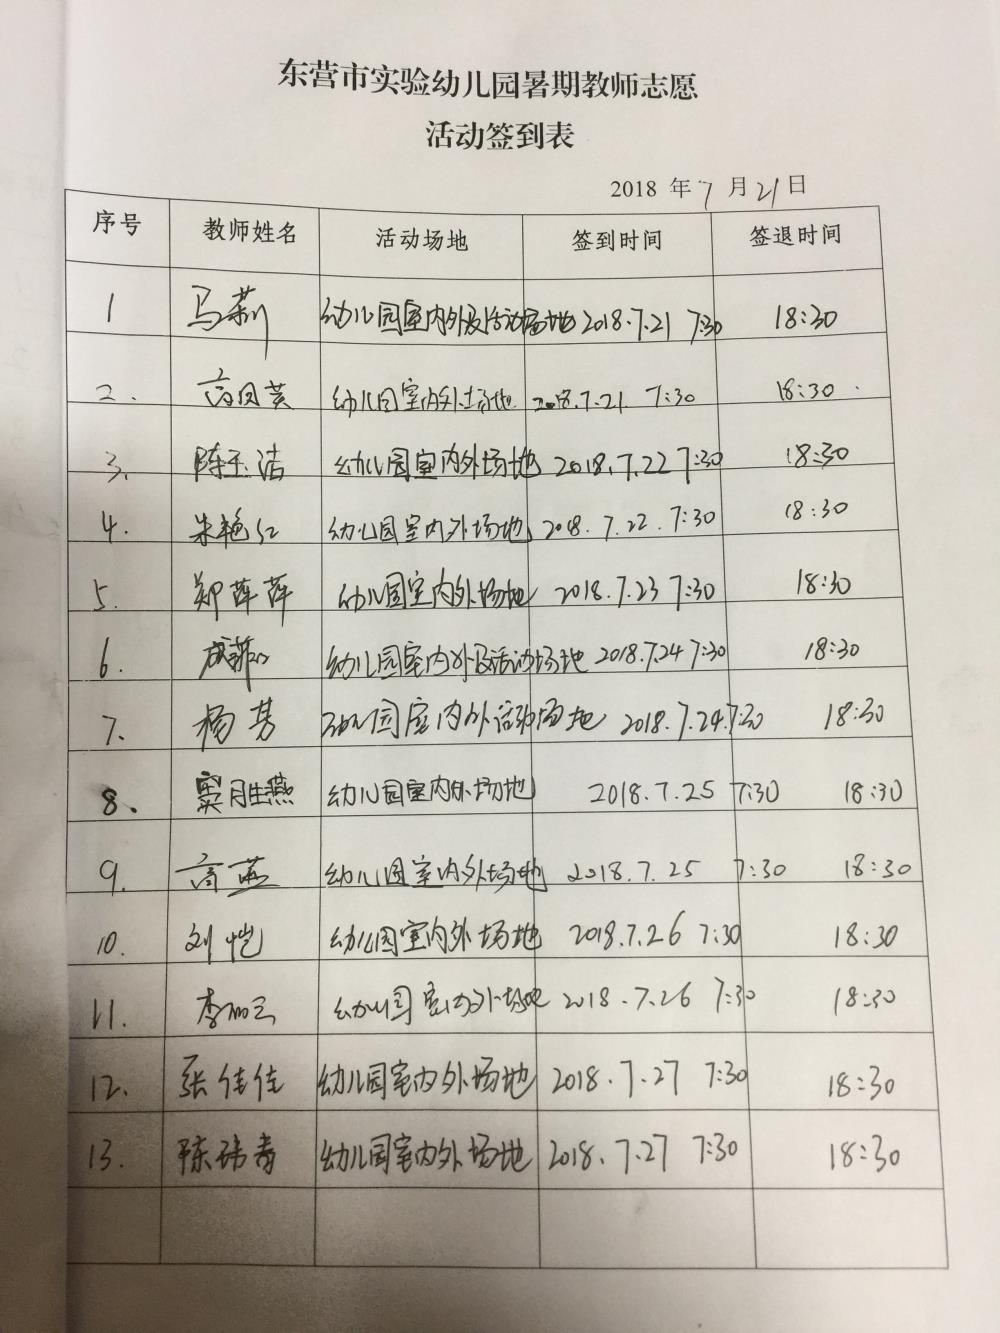 东营市实验幼儿园暑期教师志愿
活动签到表
2018 年 7 月 21 日
序号 教师姓名 活动场地 签到时间 签退时间
1 马莉 幼儿园室内外及活动场地 2018.7.21 7:30 18:30
2. 高凤英 幼儿园室内外场地 2018.7.21. 7:30 18:30
3. 陈玉洁 幼儿园室内外场地 2018.7.22 7:30 18:30
4. 朱艳红 幼儿园室内外场地 2018.7.22. 7:30 18:30
5. 郑萍萍 幼儿园室内外场地 2018.7.23 7:30 18:30
6. 幼儿园室内外及活动场地 2018.7.24 7:30 18:30
7. 杨芳 幼儿园室内外活动场地 2018.7.24. 7:30 18:30
8. 窦胜燕 幼儿园室内外场地 2018.7.25 7:30 18:30
9. 高燕 幼儿园室内外场地 2018.7.25 7:30 18:30
10. 刘恺 幼儿园室内外场地 2018.7.26 7:30 18:30
11. 幼儿园室内外场地 2018.7.26 7:30 18:30
12. 张佳佳 幼儿园室内外场地 2018.7.27 7:30 18:30
13. 幼儿园室内外场地 2018.7.27 7:30 18:30